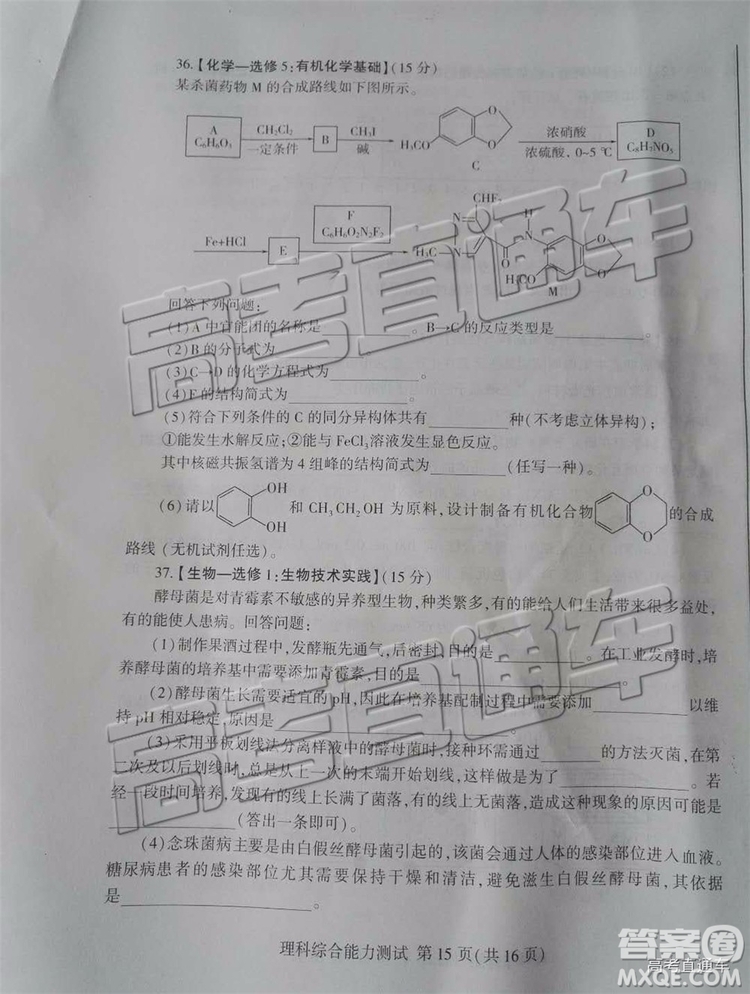 36.【化学—选修5:有机化学基础】(15分)
某杀菌药物M的合成路线如下图所示。
A
C₆H₆O₃
CH₂Cl₂
一定条件
B
CH₃I
碱
H₃CO
O
O
C
浓硝酸
浓硫酸、0~5 ℃
D
C₈H₇NO₅
Fe+HCl
E
F
C₆H₆O₂N₂F₂
CHF₂
N
H₃C
N
O
N
H
H₃CO
O
O
M
回答下列问题:
(1)A中官能团的名称是________。B→C的反应类型是________。
(2)B的分子式为________。
(3)C→D的化学方程式为________。
(4)E的结构简式为________。
(5)符合下列条件的C的同分异构体共有________种(不考虑立体异构);
①能发生水解反应;②能与FeCl₃溶液发生显色反应。
其中核磁共振氢谱为4组峰的结构简式为________(任写一种)。
(6)请以 OH OH 和CH₃CH₂OH为原料,设计制备有机化合物 O O 的合成
路线(无机试剂任选)。
37.【生物—选修1:生物技术实践】(15分)
酵母菌是对青霉素不敏感的异养型生物,种类繁多,有的能给人们生活带来很多益处,
有的能使人患病。回答问题:
(1)制作果酒过程中,发酵瓶先通气,后密封,目的是________。在工业发酵时,培
养酵母菌的培养基中需要添加青霉素,目的是________。
(2)酵母菌生长需要适宜的pH,因此在培养基配制过程中需要添加________以维
持pH相对稳定,原因是________。
(3)采用平板划线法分离样液中的酵母菌时,接种环需通过________的方法灭菌,在第
二次及以后划线时,总是从上一次的末端开始划线,这样做是为了________。若
经一段时间培养,发现有的线上长满了菌落,有的线上无菌落,造成这种现象的原因可能是
________(答出一条即可)。
(4)念珠菌病主要是由白假丝酵母菌引起的,该菌会通过人体的感染部位进入血液。
糖尿病患者的感染部位尤其需要保持干燥和清洁,避免滋生白假丝酵母菌,其依据
是________。
理科综合能力测试 第15页(共16页)
高考直通车
高考直通车
答案圈
高考直通车
MXQE.COM